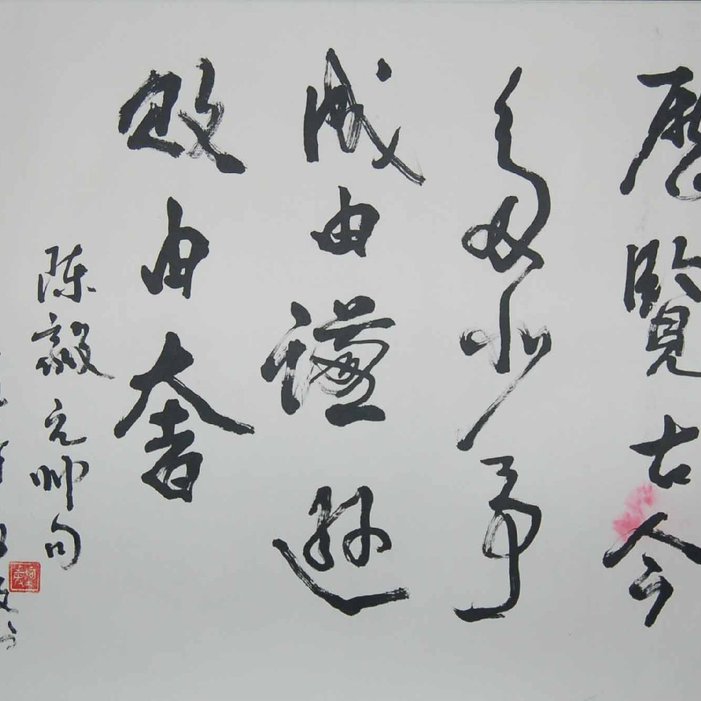 歷覽古今
多少事
成由謙遜
敗由奢
陈毅元帅句